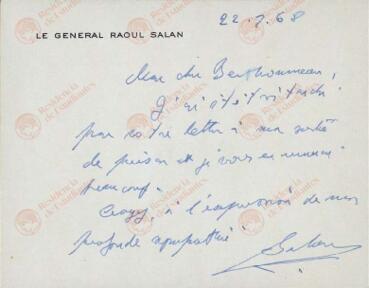 22.7.68
LE GENERAL RAOUL SALAN
Mon cher Berthommeau,
J'ai été très touché
par votre lettre à ma sortie
de prison et je vous en remercie
beaucoup.
Croyez, à l'expression de ma
profonde sympathie.
Salan
Residencia de Estudiantes